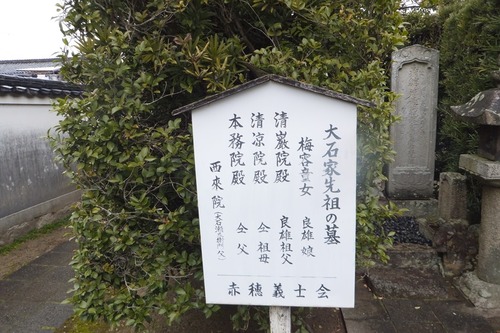 大石家先祖の墓
梅容童女 良雄娘
清巌院殿 良雄祖父
清凉院殿 仝祖母
本務院殿 仝父
西來院
赤穂義士会